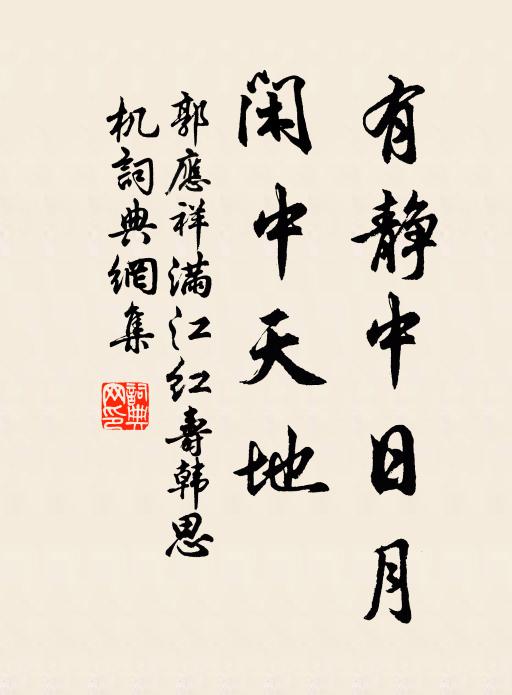 有靜中日月
閑中天地
郭應祥滿江红壽韩思
机詞典網集
詞典網印